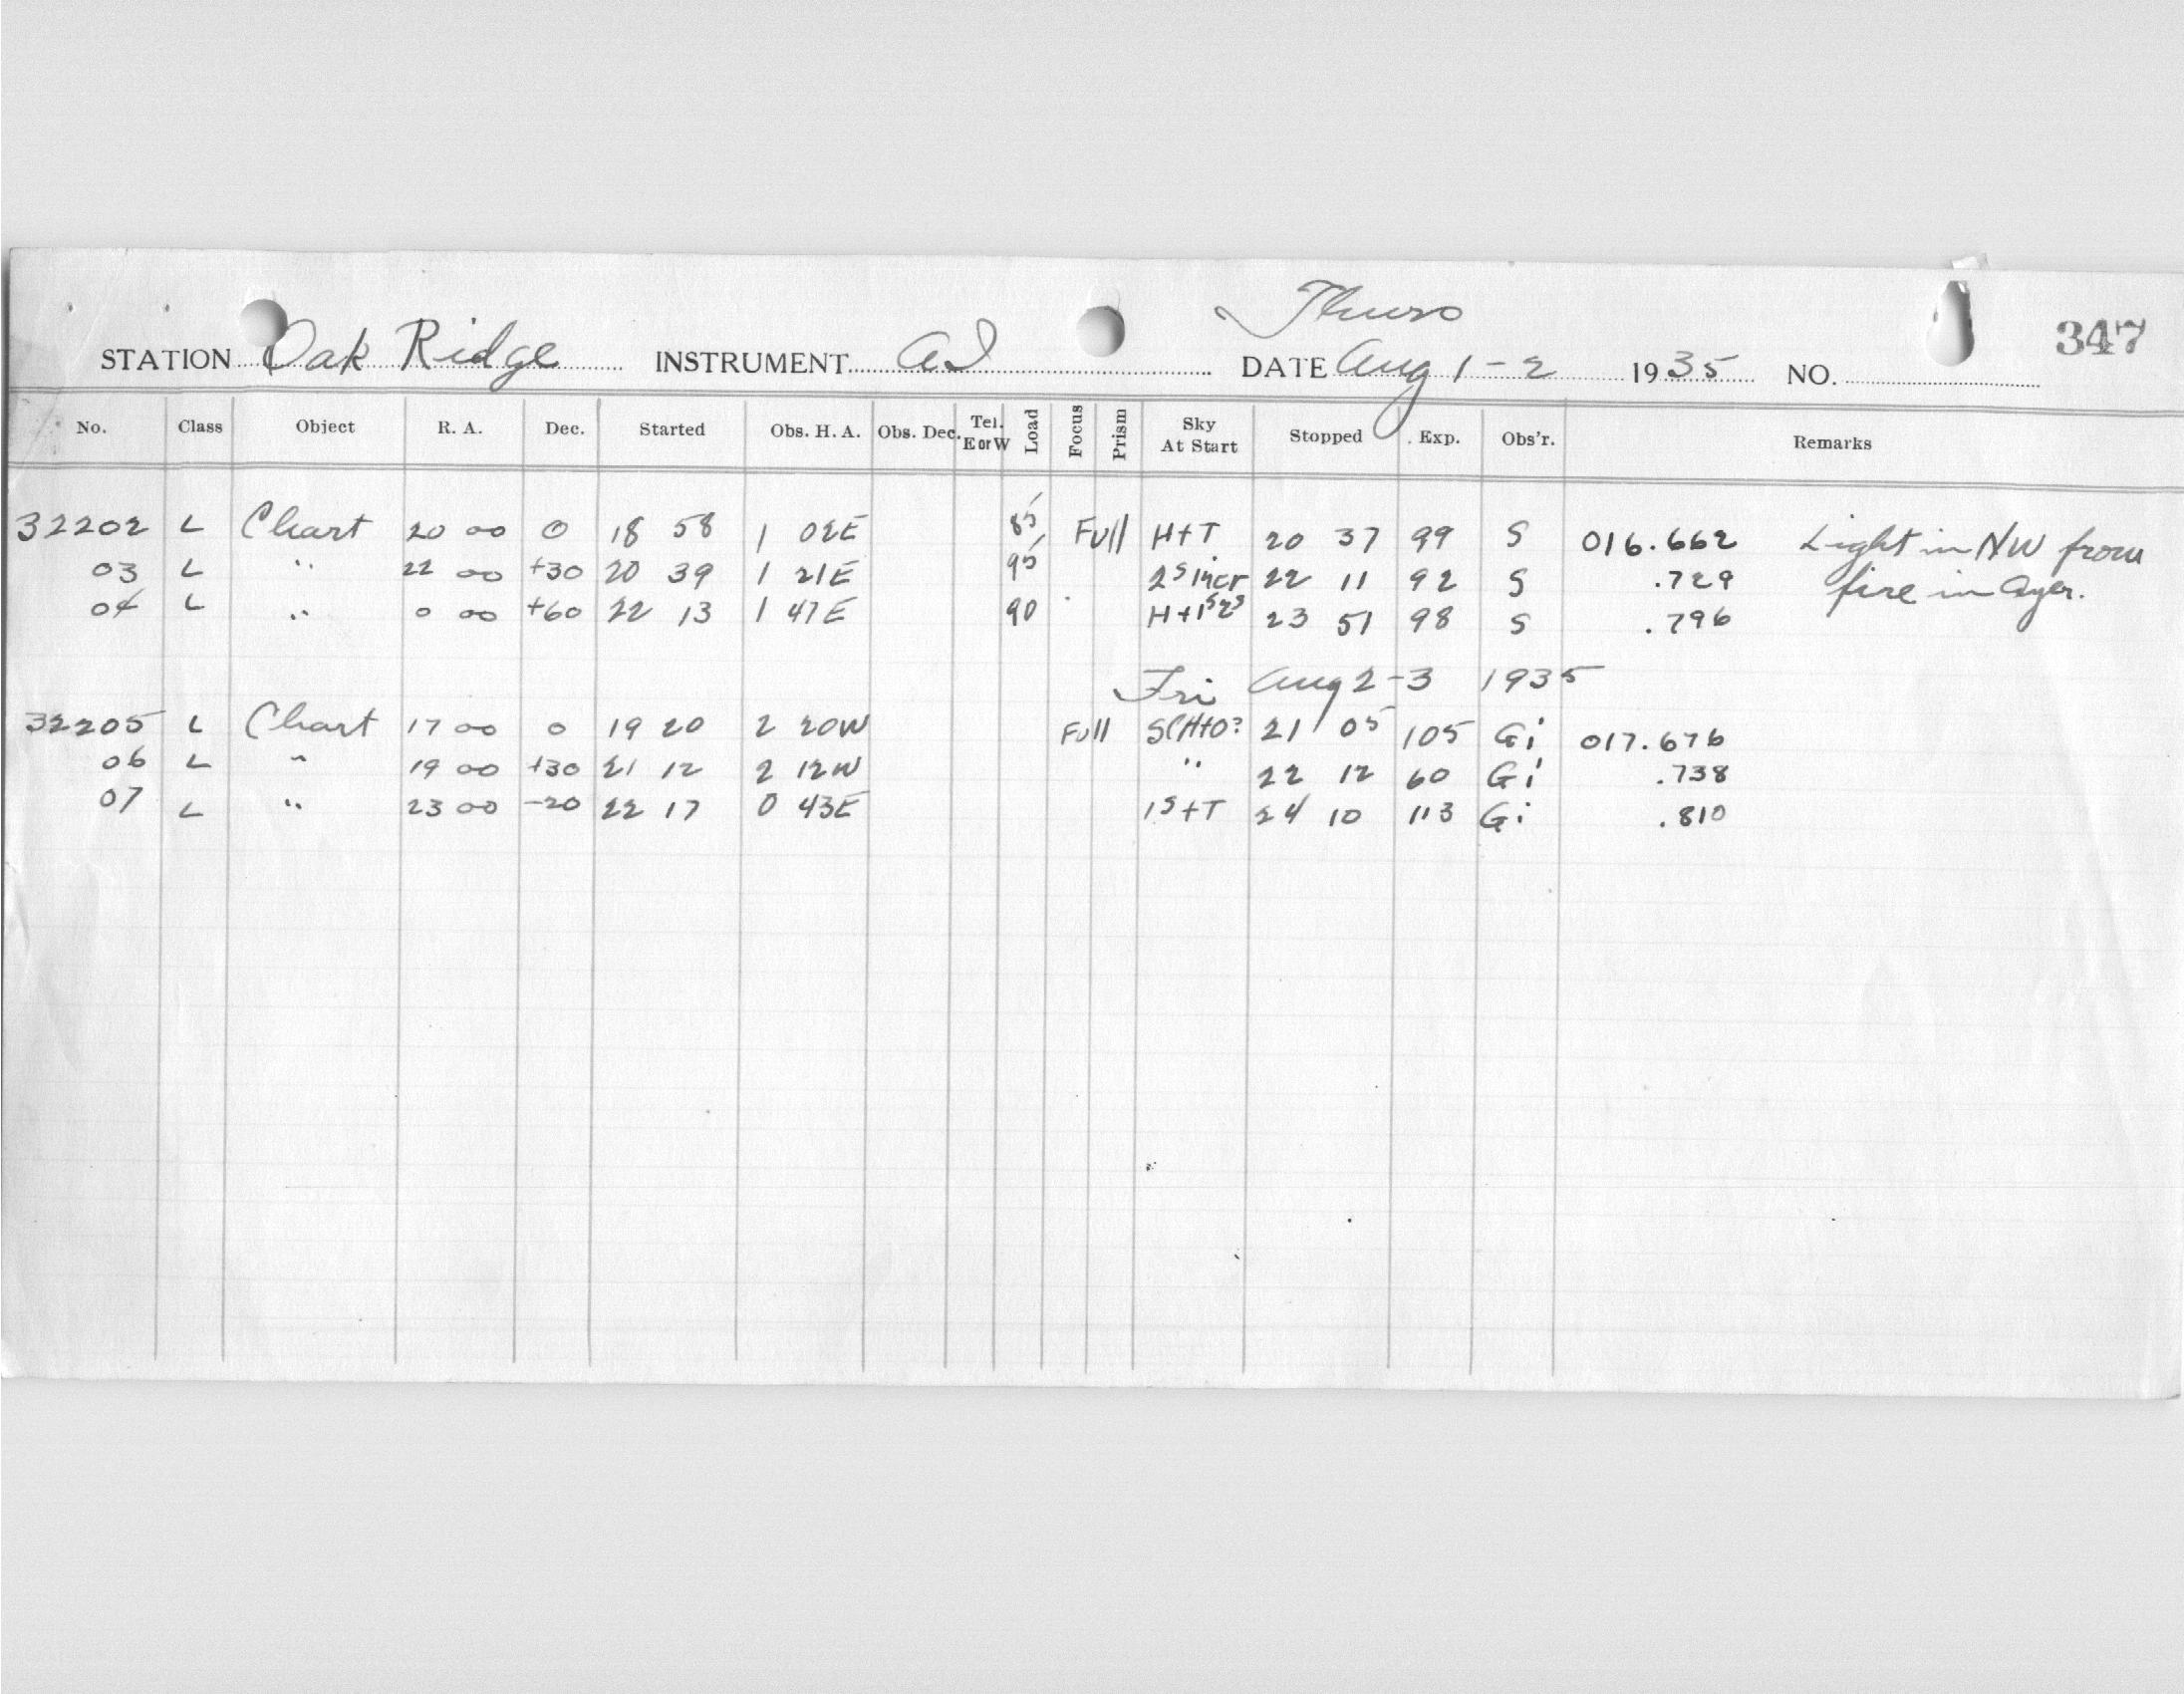 Thurs
347
STATION Oak Ridge INSTRUMENT AI DATE Aug 1-2 1935 NO.
No. Class Object R. A. Dec. Started Obs. H. A. Obs. Dec. Tel. E or W Load Focus Prism Sky At Start Stopped Exp. Obs'r. Remarks
32202 L Chart 20 00 0 18 58 1 02E 85 Full H+T 20 37 99 S 016.662 Light in NW from
03 L " 22 00 +30 20 39 1 21E 95 2s incr 22 11 92 S .729 fire in Ayer.
04 L " 0 00 +60 22 13 1 47E 90 23 51 98 S .796
Fri Aug 2-3 1935
32205 L Chart 17 00 0 19 20 2 20W Full S(H+O? 21 05 105 Gi 017.676
06 L " 19 00 +30 21 12 2 12W " 22 12 60 Gi .738
07 L " 23 00 -20 22 17 0 43E 1s+T 24 10 113 Gi .810